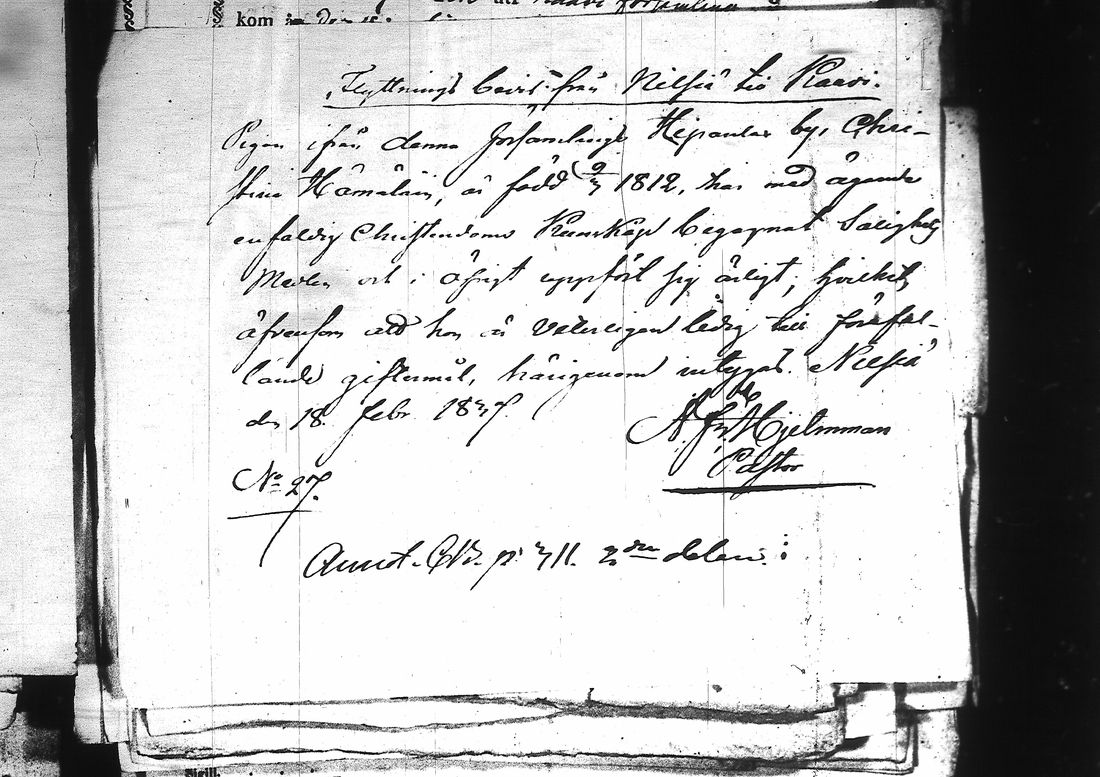 kom
Flyttnings bevis från Nilsiä till Kaavi.
Pigan ifrån denna församlings by, Chri-
stina Hämäläin, är född 9/3 1812, har med ägande
enfaldig Christendoms Kunskap begagnat Salighets
Medlen och i öfrigt uppfört sig ärligt, hvilket,
äfvensom att hon är veterligen ledig till förefal-
lande giftermål, härigenom intygas. Nilsiä
den 18. Febr. 1837.
Hjelmman
Pastor
No 27.
Annot. C.B. p. 311. 2dra delen.
Sigill.